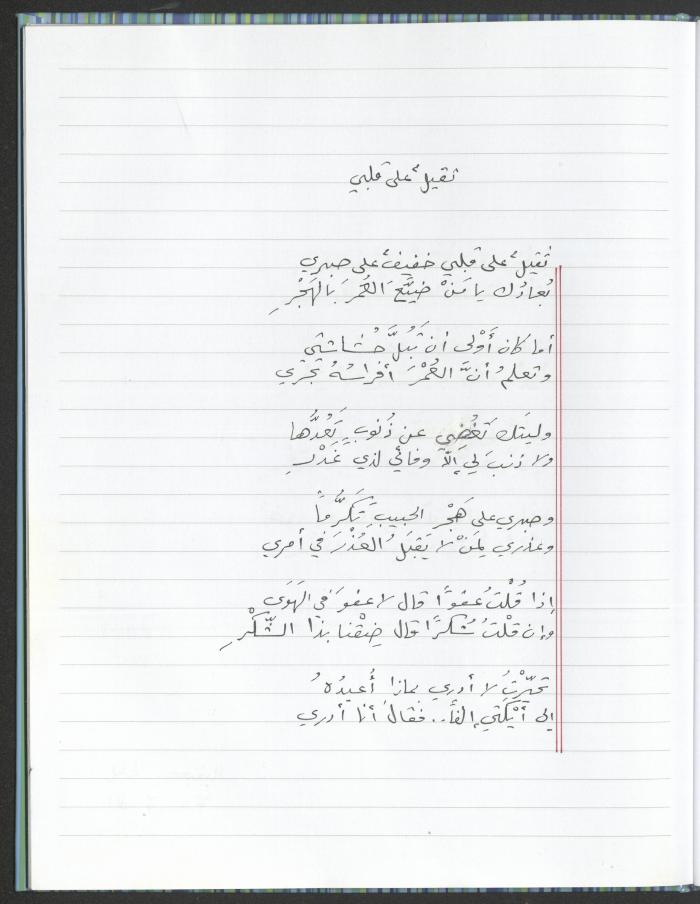 ثقيلٌ على قلبي
ثقيلٌ على قلبي خفيفٌ على صبري
بُعادُك يا مَنْ ضيَّعَ العُمرَ بالهَجْرِ
أما كان أَوْلى أن تَبُلَّ حُشاشتي
وتعلمُ أنَّ العُمْرَ أفراسُهُ تجْري
وليتَك تُغْضِي عن ذُنوبٍ تَعُدُّها
ولا ذنبَ لي إلّا وفائي لذي غَدْرِ
وصبري على هَجْرِ الحبيبِ تَكَرُّماً
وعذري لِمَنْ لا يَقبَلُ العُذْرَ في أمري
إذا قُلْتُ عفوًا قال لا عفوَ في الهَوَى
وإن قلْتُ شُكرًا قال ضِقْنا بذا الشُّكْرِ
تحيّرْتُ لا أدري بماذا أُعيدُهُ
إلى أيْكَتي إلفاً.. فقالَ أنا أدري